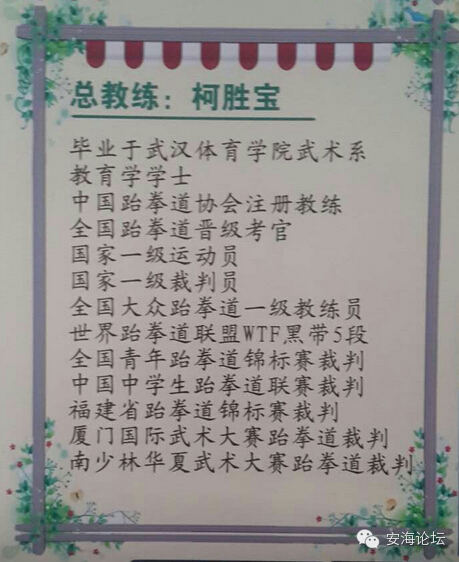 总教练：柯胜宝
毕业于武汉体育学院武术系
教育学学士
中国跆拳道协会注册教练
全国跆拳道晋级考官
国家一级运动员
国家一级裁判员
全国大众跆拳道一级教练员
世界跆拳道联盟WTF黑带5段
全国青年跆拳道锦标赛裁判
中国中学生跆拳道联赛裁判
福建省跆拳道锦标赛裁判
厦门国际武术大赛跆拳道裁判
南少林华夏武术大赛跆拳道裁判
安海论坛